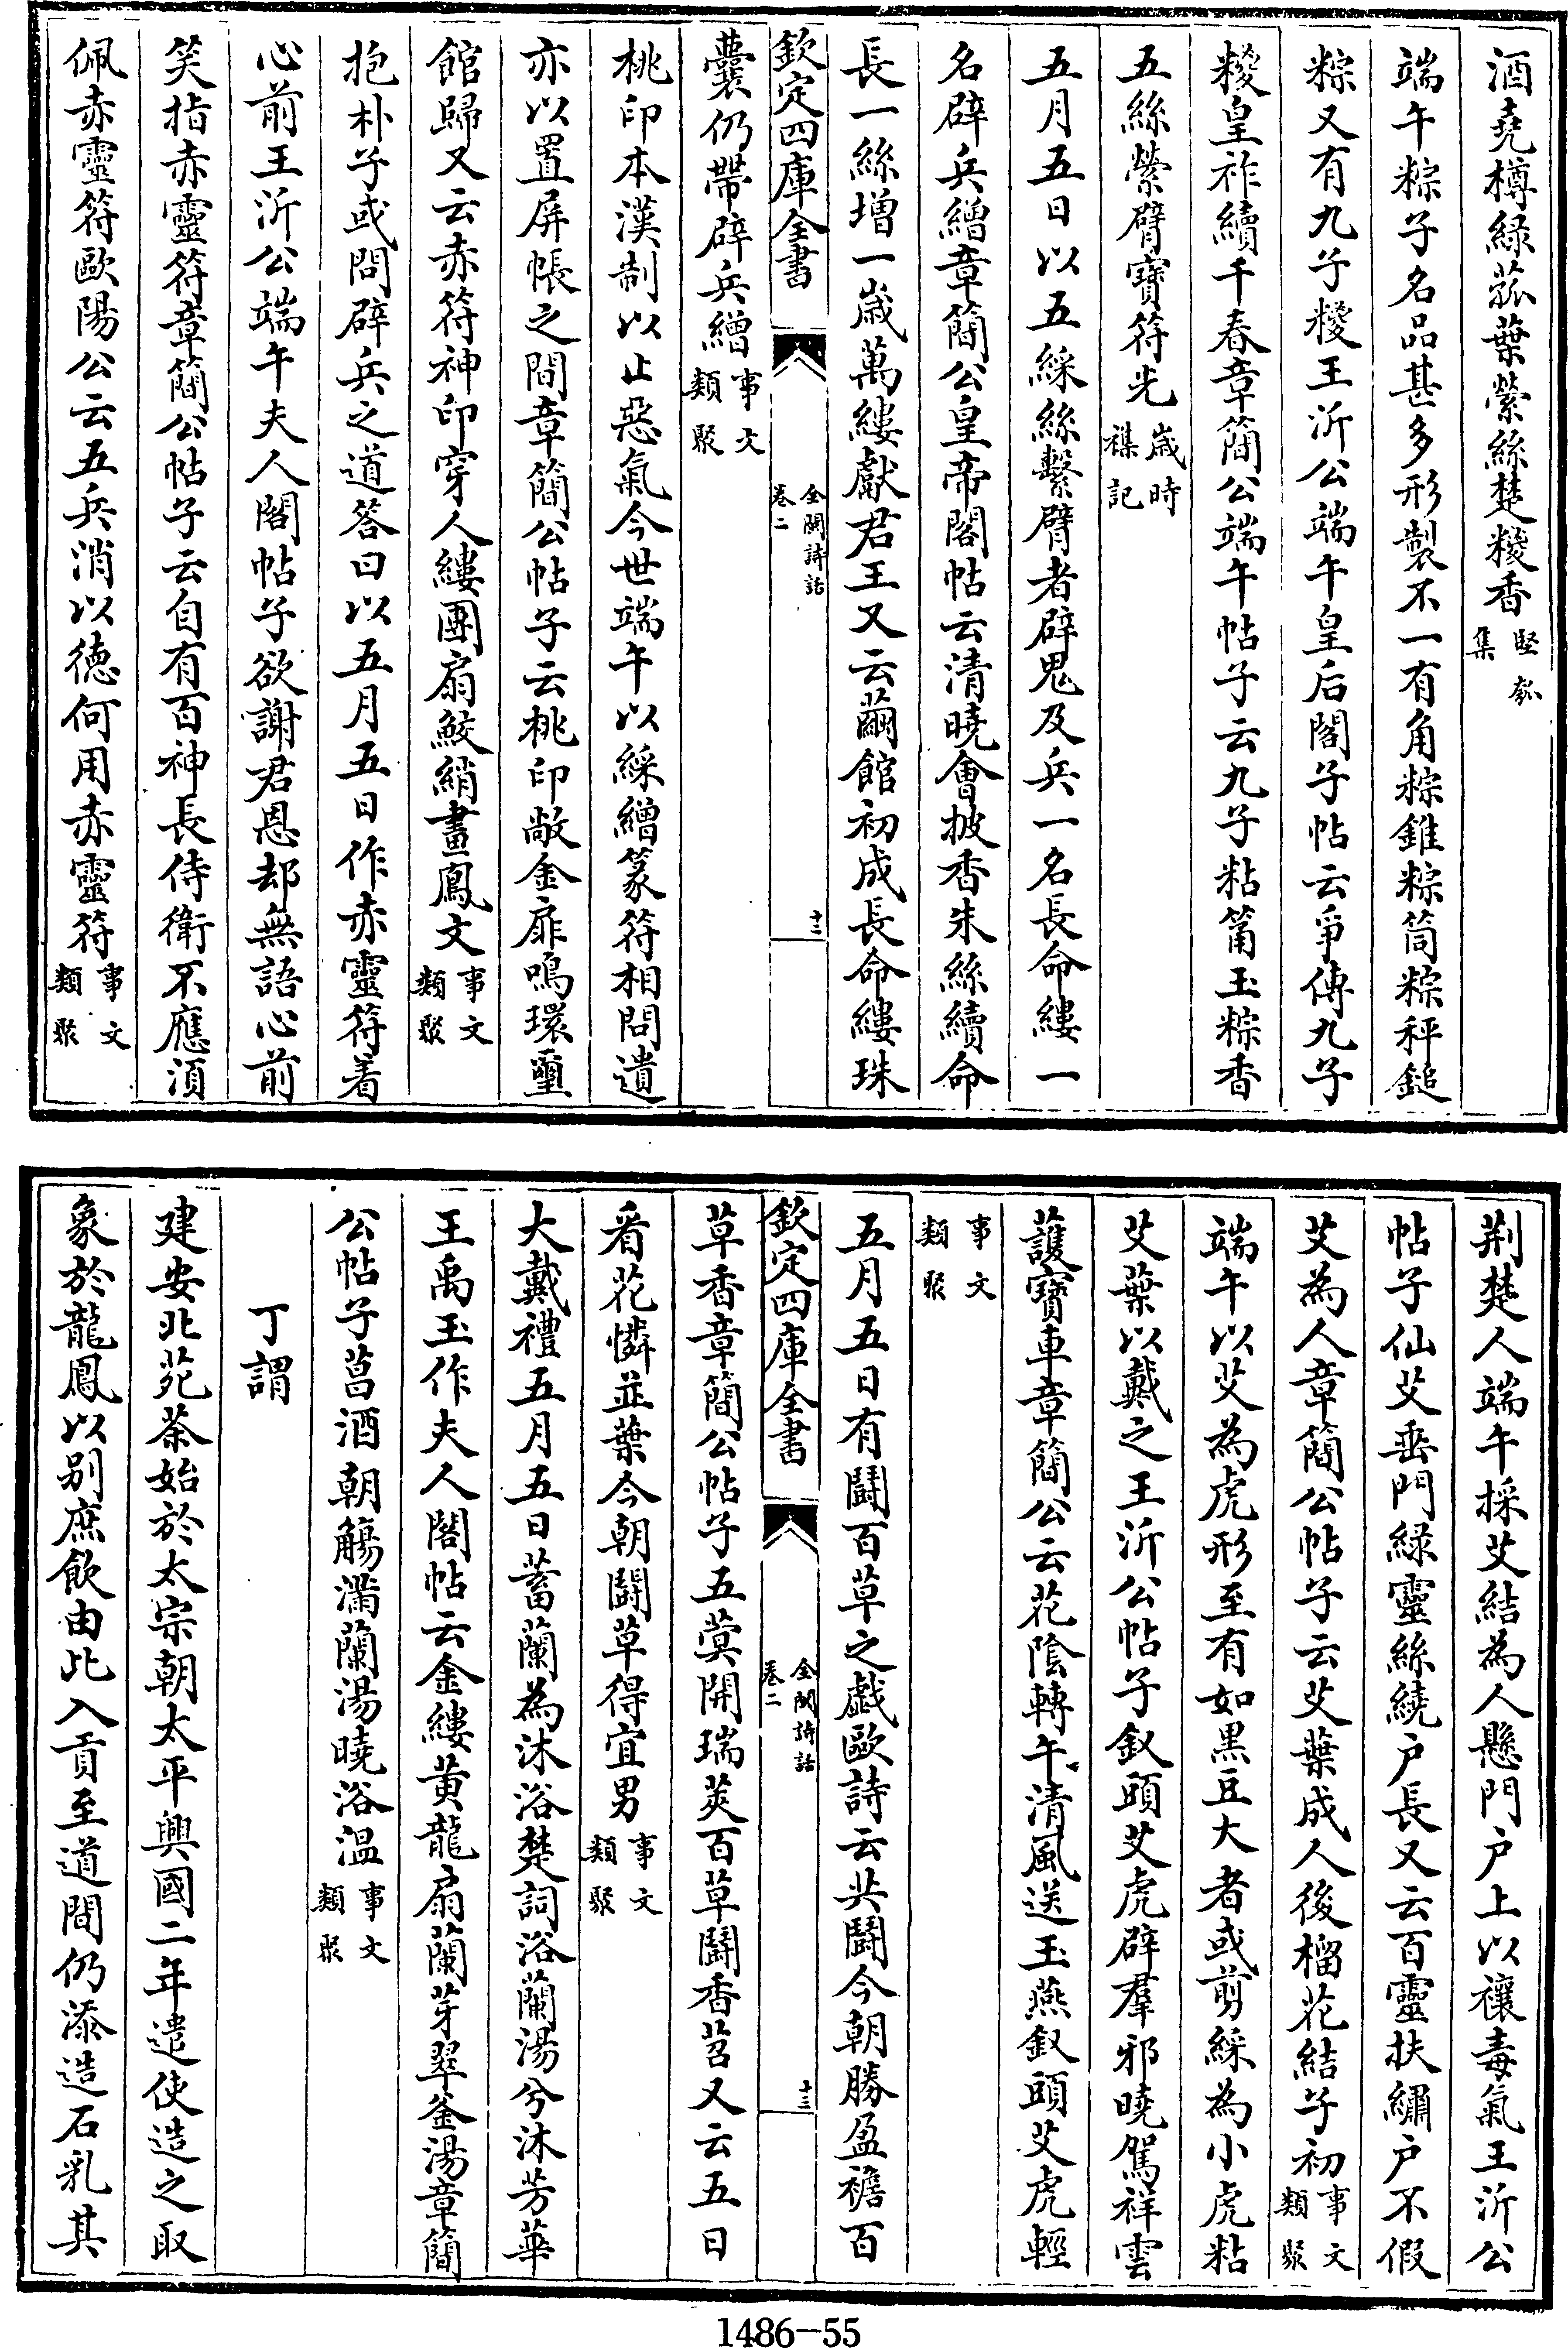 酒堯樽緑菰葉縈絲楚糭香堅瓠集
端午粽子名品甚多形製不一有角粽錐粽筒粽秤鎚
粽又有九子糭王沂公端午皇后閣子帖云爭傳九子
糭皇祚續千春章簡公端午帖子云九子粘筩玉粽香
五絲縈臂寳符光歳時襍記
五月五日以五綵絲繫臂者辟鬼及兵一名長命縷一
名辟兵繒章簡公皇帝閣帖云清曉會披香朱絲續命
長一絲増一嵗萬縷獻君王又云繭館初成長命縷珠
欽定四庫全書
全閩詩話
卷二
十二
囊仍帶辟兵繒事文類聚
桃印本漢制以止惡氣今世端午以綵繒篆符相問遺
亦以置屏帳之間章簡公帖子云桃印敞金扉鳴環璽
館歸又云赤符神印穿人縷團扇鮫綃畫鳳文事文類聚
抱朴子或問辟兵之道答曰以五月五日作赤靈符着
心前王沂公端午夫人閣帖子欲謝君恩却無語心前
笑指赤靈符章簡公帖子云自有百神長侍衛不應湏
佩赤靈符歐陽公云五兵消以徳何用赤靈符事文類聚
荆楚人端午採艾結為人懸門户上以禳毒氣王沂公
帖子仙艾垂門緑靈絲繞户長又云百靈扶繡户不假
艾為人章簡公帖子云艾葉成人後榴花結子初事文類聚
端午以艾為虎形至有如黒豆大者或剪綵為小虎粘
艾葉以戴之王沂公帖子釵頭艾虎辟羣邪曉駕祥雲
護寳車章簡公云花陰轉午清風送玉燕釵頭艾虎輕
事文類聚
五月五日有鬪百草之戯歐詩云共鬪今朝勝盈襜百
欽定四庫全書
全閩詩話
卷二
十三
草香章簡公帖子五蓂開瑞莢百草鬪香苕又云五日
看花憐並葉今朝鬪草得宜男事文類聚
大戴禮五月五日蓄蘭為沐浴楚詞浴蘭湯兮沐芳華
王禹玉作夫人閣帖云金縷黄龍扇蘭芽翠釜湯章簡
公帖子菖酒朝觴滿蘭湯曉浴温事文類聚
丁謂
建安北苑茶始於太宗朝太平興國二年遣使造之取
象於龍鳳以别庶飲由此入貢至道間仍添造石乳其
1486-55